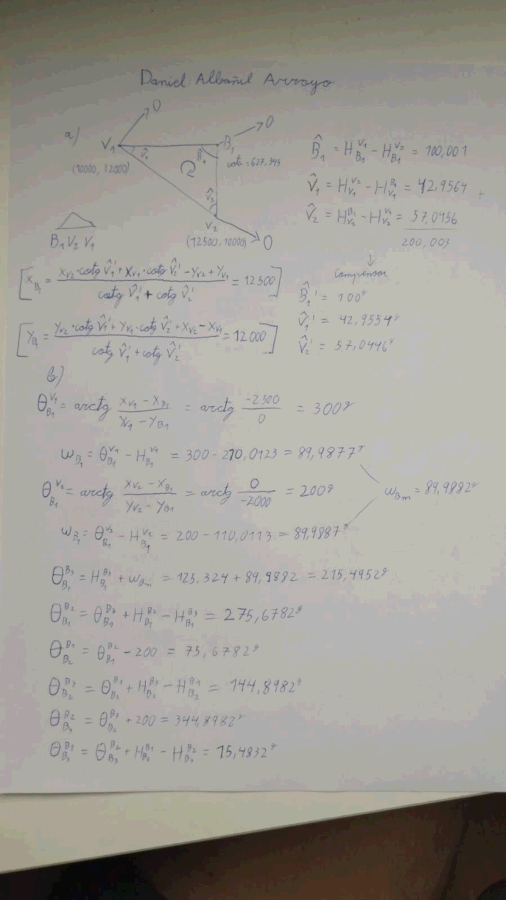 Daniel Albañil Arroyo
a)
O
V₁
B₁
O
(10000, 12000)
V₂
(12500, 10000)
O
B₁ V₂ V₁
B̂₁ = H_{B₁}^{V₁} - H_{B₁}^{V₂} = 100,001
V̂₁ = H_{V₁}^{V₂} - H_{V₁}^{B₁} = 42,9564 +
V̂₂ = H_{V₂}^{B₁} - H_{V₂}^{V₁} = 57,0456
200,003
Compensar
B̂₁' = 100ᵍ
V̂₁' = 42,9554ᵍ
V̂₂' = 57,0446ᵍ
[X_{B₁} = (X_{V₂}·cotg V̂₂'+X_{V₁}·cotg V̂₁'-Y_{V₂}+Y_{V₁}) / (cotg V̂₁' + cotg V̂₂') = 12500]
[Y_{B₁} = (Y_{V₂}·cotg V̂₁'+Y_{V₁}·cotg V̂₂'+X_{V₂}-X_{V₁}) / (cotg V̂₁'+cotg V̂₂') = 12000]
b)
θ_{B₁}^{V₁} = arctg (X_{V₁} - X_{B₁}) / (Y_{V₁} - Y_{B₁}) = arctg -2500 / 0 = 300ᵍ
ω_{B₁} = θ_{B₁}^{V₁} - H_{B₁}^{V₁} = 300 - 210,0123 = 89,9877ᵍ
θ_{B₁}^{V₂} = arctg (X_{V₂} - X_{B₁}) / (Y_{V₂} - Y_{B₁}) = arctg 0 / -2000 = 200ᵍ
ω_{Bm} = 89,9882ᵍ
ω_{B₁} = θ_{B₁}^{V₂} - H_{B₁}^{V₂} = 200 - 110,0113 = 89,9887ᵍ
θ_{B₁}^{B₃} = H_{B₁}^{B₃} + ω_{Bm} = 125,324 + 89,9882 = 215,4952ᵍ
θ_{B₁}^{B₂} = θ_{B₁}^{B₃} + H_{B₁}^{B₂} - H_{B₁}^{B₃} = 275,6782ᵍ
θ_{B₂}^{B₁} = θ_{B₁}^{B₂} - 200 = 75,6782ᵍ
θ_{B₂}^{B₃} = θ_{B₂}^{B₁} + H_{B₂}^{B₃} - H_{B₂}^{B₁} = 144,8982ᵍ
θ_{B₃}^{B₂} = θ_{B₂}^{B₃} + 200 = 344,8982ᵍ
θ_{B₃}^{B₁} = θ_{B₃}^{B₂} + H_{B₃}^{B₁} - H_{B₃}^{B₂} = 15,4832ᵍ